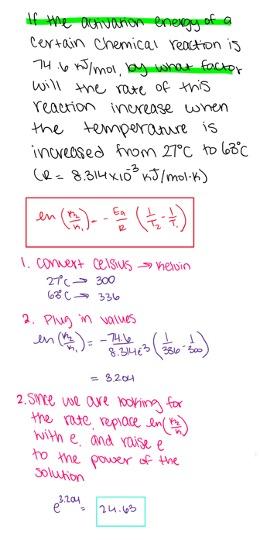 If the activation energy of a
certain chemical reaction is
74.6 kJ/mol, by what factor
will the rate of this
reaction increase when
the temperature is
increased from 27°C to 63°C
(R = 8.314x10⁻³ kJ/mol·K)
en (K₂/K₁) = - Ea/R (1/T₂ - 1/T₁)
1. Convert Celsius → Kelvin
27°C → 300
63°C → 336
2. Plug in values
en (K₂/K₁) = -74.6/8.314e⁻³ (1/336 - 1/300)
= 3.204
2. Since we are looking for
the rate, replace en(K₂/K₁)
with e, and raise e
to the power of the
solution
e^3.204 = 24.63